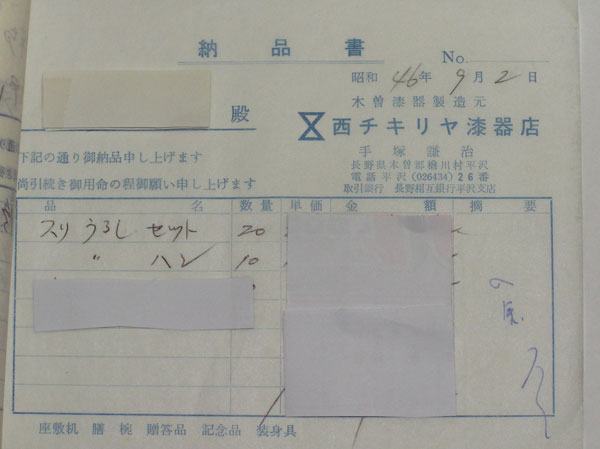 納品書
No.
昭和 46年 9月 2日
殿
木曽漆器製造元
西チキリヤ漆器店
手塚謙治
長野県木曽郡楢川村平沢
電話平沢(026434)26番
取引銀行 長野相互銀行平沢支店
下記の通り御納品申し上げます
尚引続き御用命の程御願い申し上げます
品名 数量 単価 金額 摘要
スリうるし セット 20
〃 ハシ 10
座敷机 膳 椀 贈答品 記念品 装身具